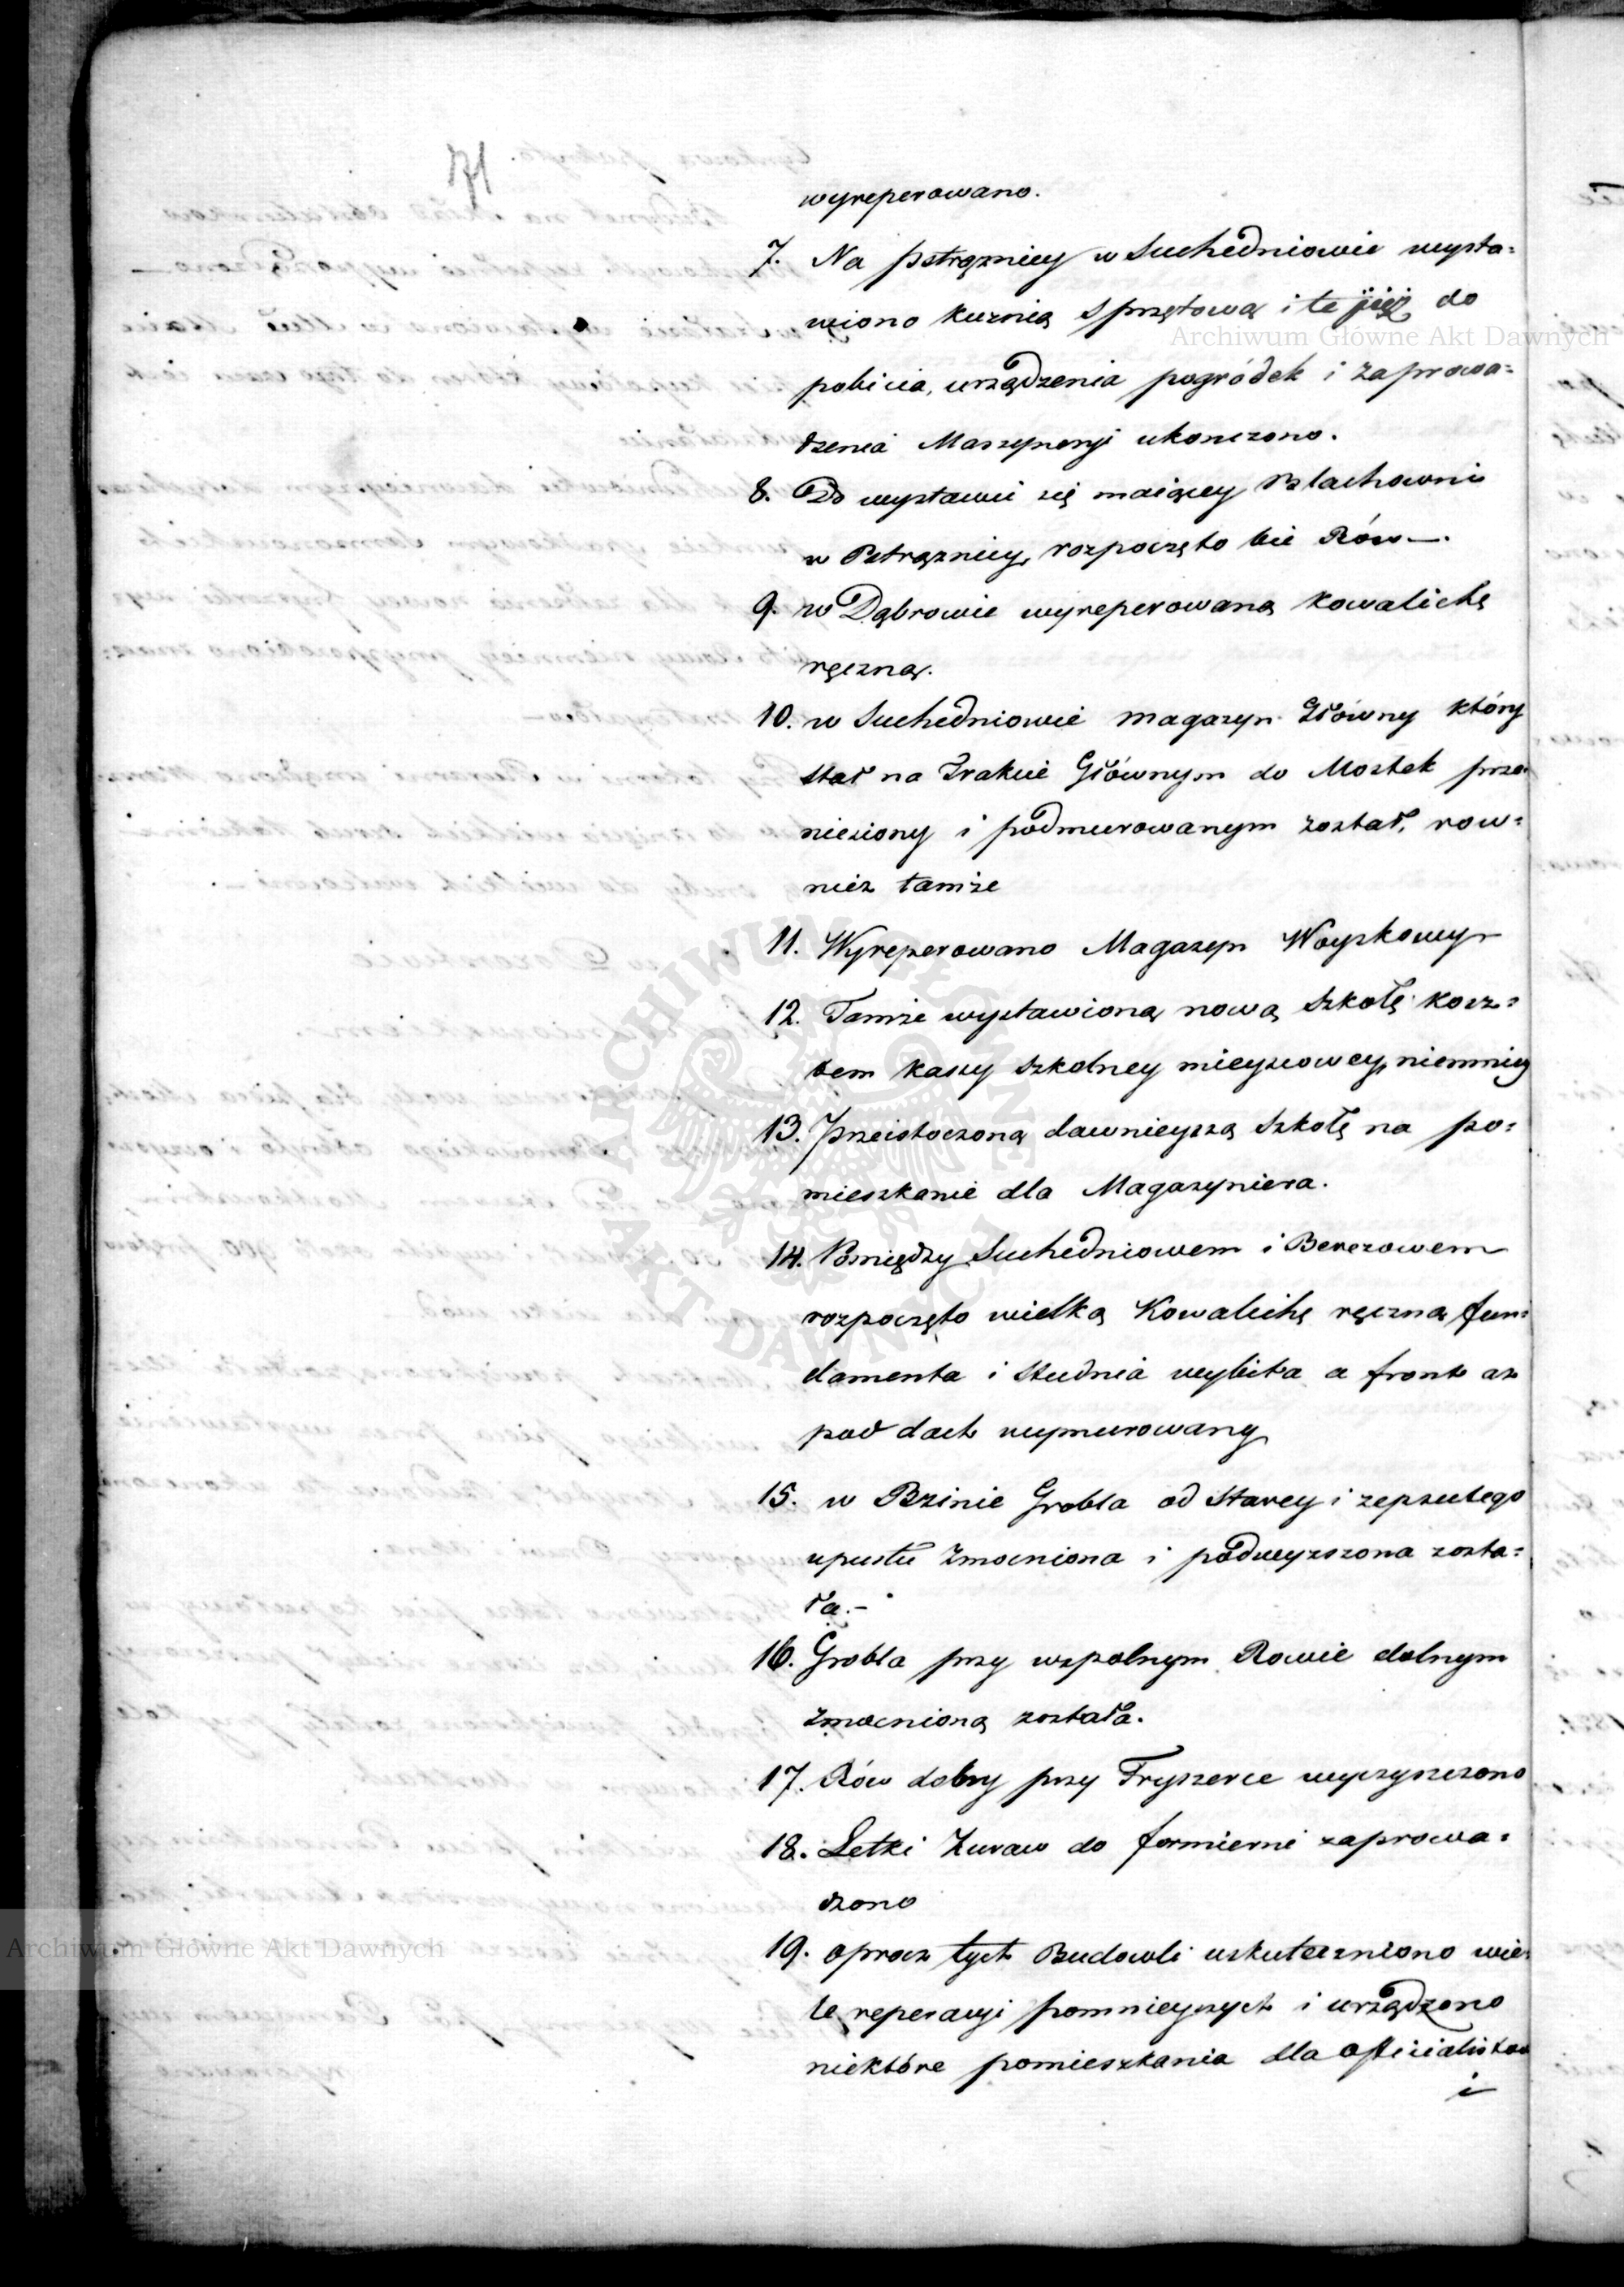 71
wyreperowano.
7. Na pstrąznicy w Suchedniowie wysta=
wiono kuznią sprzętową i te już do
pobicia, urządzenia pogródek i zaprowa=
dzenia Maszyneryi ukonczono.
8. Do wystawić się maiącey Blachowni
w Pstrąznicy, rozpoczęto bić Rów—.
9. w Dąbrowie wyreperowaną kowalichę
ręczną.
10. w Suchedniowie magazyn Główny który
stał na Trakcie Głównym do Mostek prze=
niesiony i podmurowanym został, row=
niez tamże
11. Wyreperowano Magazyn Woyskowy
12. Tamże wystawioną nową Szkołę kosz=
tem kassy szkolney mieyscowey, niemniey
13. Przeistoczoną dawnieyszą Szkołę na po=
mieszkanie dla Magazyniera.
14. Pomiędzy Suchedniowem i Berezowem
rozpoczęto wielką Kowalichę ręczną fun=
damenta i Studnia wybita a front az
pod dach wymurowany
15. w Bzinie Grobla od Starey i zepsutego
upustu zmocniona i podwyzszona zosta=
ła.—
16. Grobla przy wspolnym Rowie dolnym
zmocnioną została.
17. Rów dolny przy Fryszerce wyczyszczono
18. Letki Zuraw do formierni zaprowa=
dzono
19. oprocz tych Budowli uskuteczniono wie=
le reperacyi pomnieyszych i urządzono
niektóre pomieszkania dla Oficialistow
i
Archiwum Główne Akt Dawnych
Archiwum Główne Akt Dawnych
ARCHIWUM GŁÓWNE AKT DAWNYCH